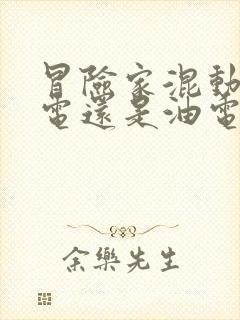 冒險家混動
電還是油電
余樂先生